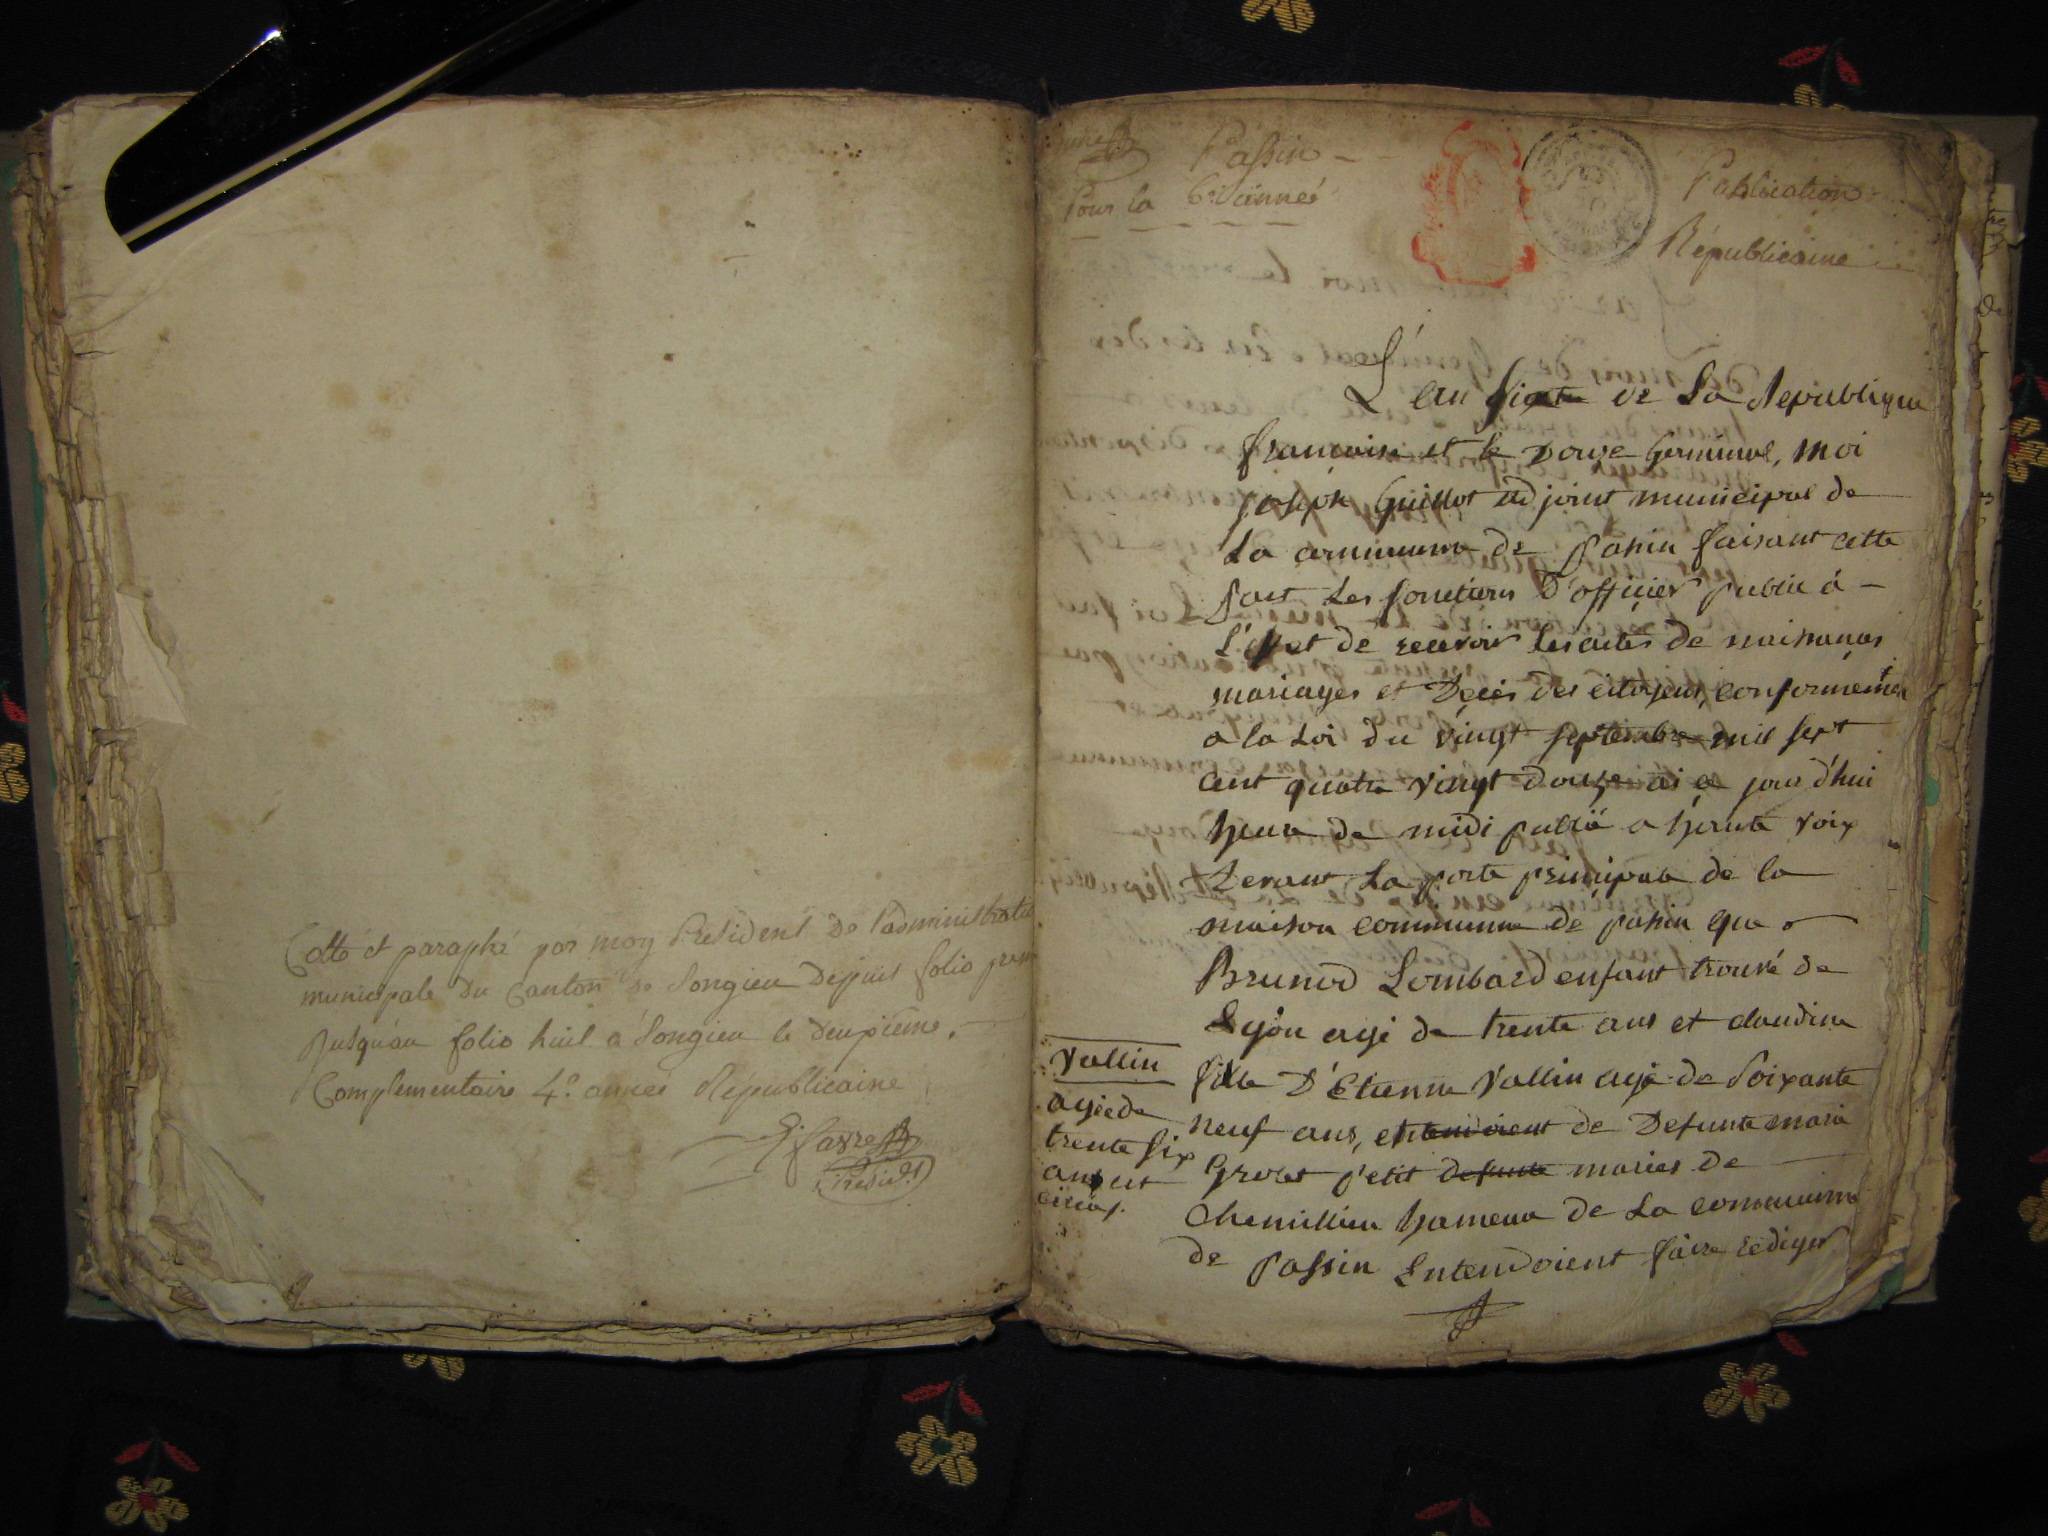 Cotté et paraphé par moy Président De l'administration
municipale Du Canton de Songieu Depuis folio premier
Jusqu'au folio huit a Songieu le deuxième
Complementaire 4e. année Républicaine
favre
Présidt
Passin
Pour la 6e. année
Publication
Républicaine
L'an sixte de La Republique
francaise et le Douze Germinal, moi
joseph Guillot adjoint municipal de
La commune de passin faisant cette
part Les fonctions D'officier public à
L'effet de recevoir les actes de naissances
mariages et Décès des citoyens, conformément
a la Loi du vingt septembre mil sept
cent quatre vingt douze ai ce jour d'hui
heure de midi publié a haute voix
Devant La porte principale de la
maison commune de passin que
Brunod Lombard enfant trouvé de
Lyon agé de trente ans et claudine
fille D'Etienne Vallin agé de Soixante
neuf ans, et de Defunte marie
Grobet petit defunte mariés de
Chemillieu hameau de La commune
de Passin Entendoient faire rediger
Vallin
agée de
trente six
ans et